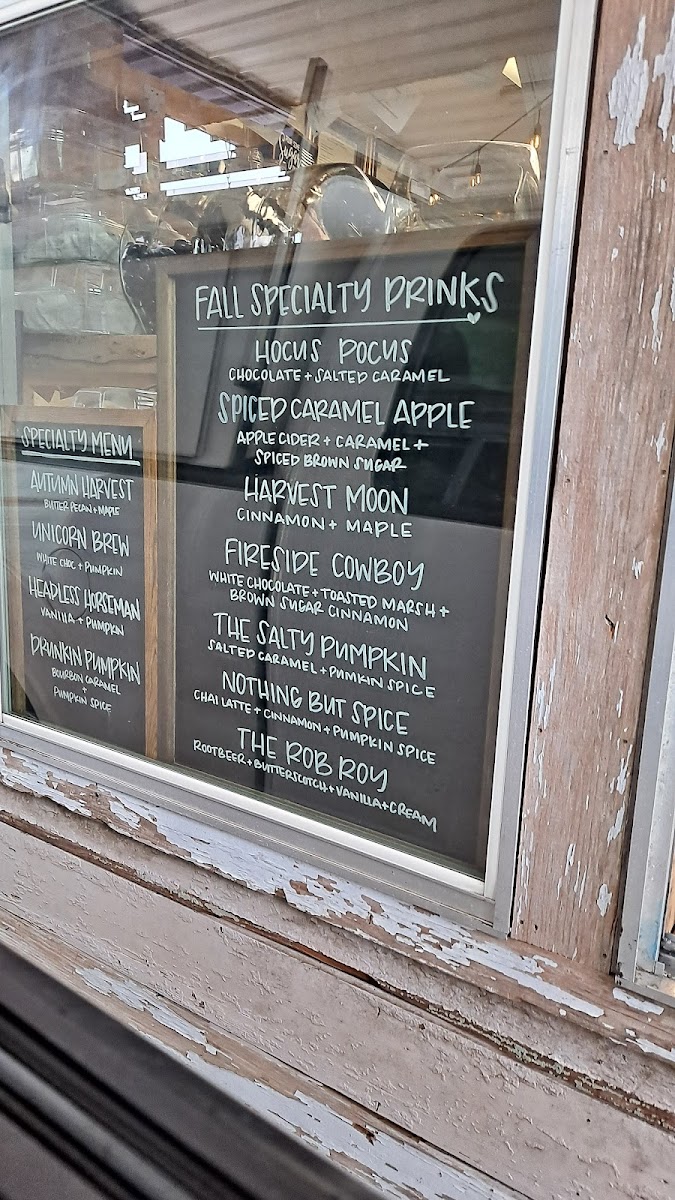 SPECIALTY MENU
AUTUMN HARVEST
BUTTER PECAN + MAPLE
UNICORN BREW
WHITE CHOC + PUMPKIN
HEADLESS HORSEMAN
VANILLA + PUMPKIN
DRUNKIN PUMPKIN
BOURBON CARAMEL
+
PUMPKIN SPICE
FALL SPECIALTY DRINKS
HOCUS POCUS
CHOCOLATE + SALTED CARAMEL
SPICED CARAMEL APPLE
APPLE CIDER + CARAMEL +
SPICED BROWN SUGAR
HARVEST MOON
CINNAMON + MAPLE
FIRESIDE COWBOY
WHITE CHOCOLATE + TOASTED MARSH +
BROWN SUGAR CINNAMON
THE SALTY PUMPKIN
SALTED CARAMEL + PUMKIN SPICE
NOTHING BUT SPICE
CHAI LATTE + CINNAMON + PUMPKIN SPICE
THE ROB ROY
ROOTBEER + BUTTERSCOTCH + VANILLA + CREAM